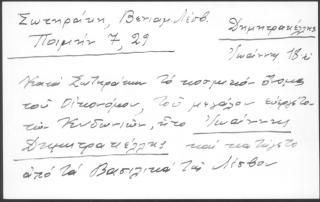 Σωτηράκη, Βενιαμ. Λέσβ.
Ποιμήν 7, 29
Δημητρακέλλης
Ἰωάννης 18 αἰ
Κατά Σωτηράκην τό κοσμικόν ὄνομα
τοῦ Οἰκονόμου, τοῦ μεγάλου εὐεργέτου
τῶν Κυδωνιῶν, ἦτο Ἰωάννης
Δημητρακέλλης καί κατήγετο
ἀπό τά Βασιλικά τῆς Λέσβου